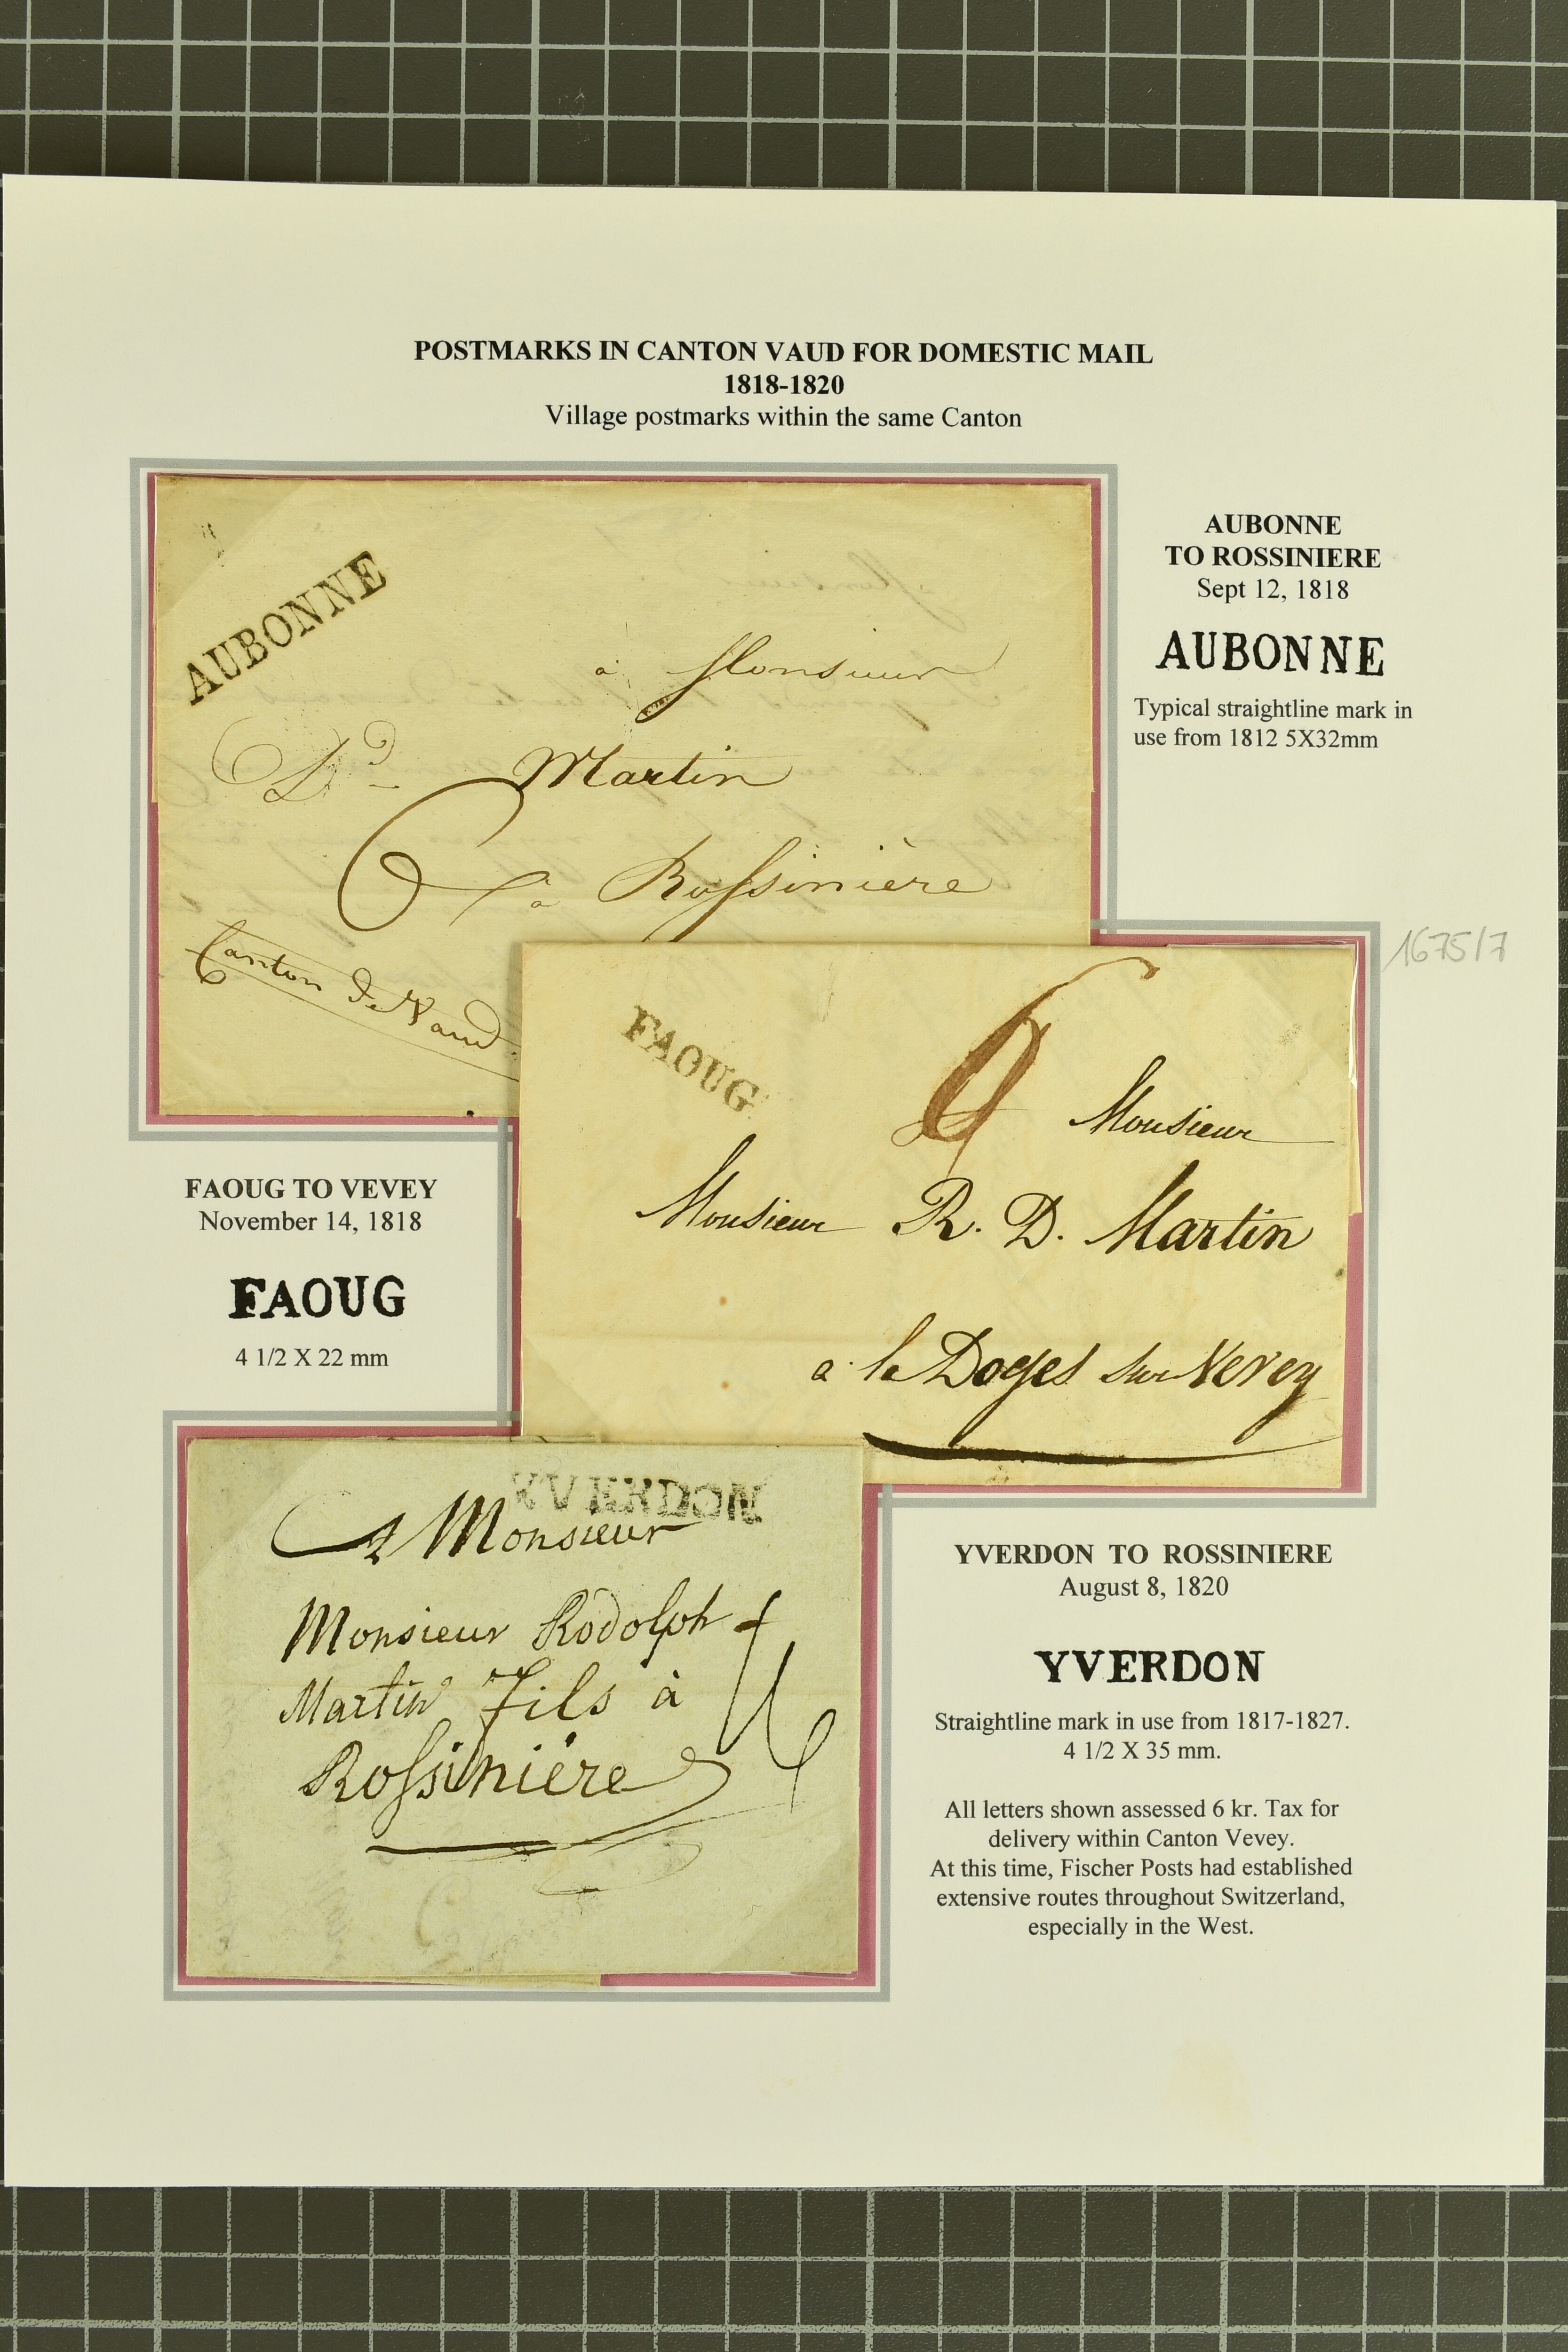 POSTMARKS IN CANTON VAUD FOR DOMESTIC MAIL
1818-1820
Village postmarks within the same Canton
AUBONNE
à Monsieur
Dd Martin
6
à Rossinière
Canton de Vaud
AUBONNE
TO ROSSINIERE
Sept 12, 1818
AUBONNE
Typical straightline mark in
use from 1812 5X32mm
1675/7
FAOUG
6
Monsieur
Monsieur R. D. Martin
a le Doyes sur Vevey
FAOUG TO VEVEY
November 14, 1818
FAOUG
4 1/2 X 22 mm
YVERDON
A Monsieur
Monsieur Rodolph
Martin Fils à
Rossinière
YVERDON TO ROSSINIERE
August 8, 1820
YVERDON
Straightline mark in use from 1817-1827.
4 1/2 X 35 mm.
All letters shown assessed 6 kr. Tax for
delivery within Canton Vevey.
At this time, Fischer Posts had established
extensive routes throughout Switzerland,
especially in the West.